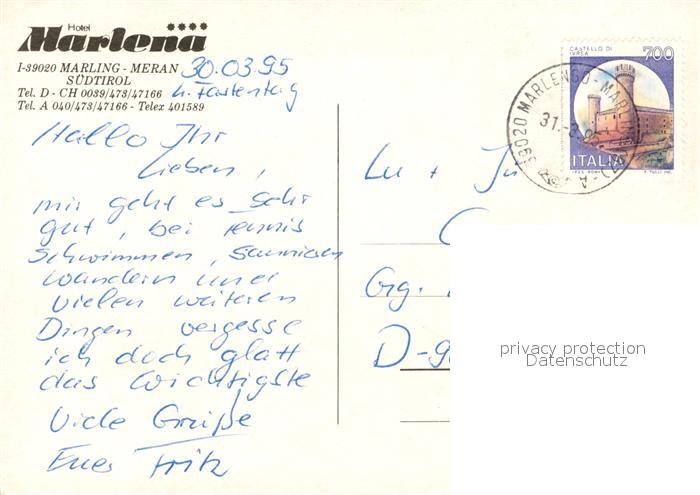 Hotel ****
Marlena
I-39020 MARLING - MERAN
SÜDTIROL
Tel. D - CH 0039/473/47166
Tel. A 040/473/47166 - Telex 401589
30.03.95
4. Fastentag
Hallo Ihr
Lieben,
mir geht es sehr
gut, bei Tennis
schwimmen, saunieren
wandern und
vielen weiteren
Dingen vergesse
ich doch glatt
das Wichtigste
Viele Grüße
Euer Fritz
CASTELLO DI
IVREA
700
ITALIA
39020 MARLENGO-MARLING
Lu + Ju
Grg.
D-9
privacy protection
Datenschutz